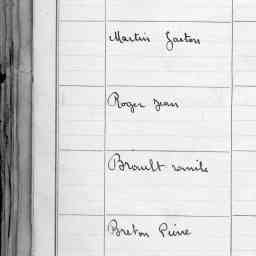 Martin Gaston
Roger Jean
Brault Camille
Breton Pierre